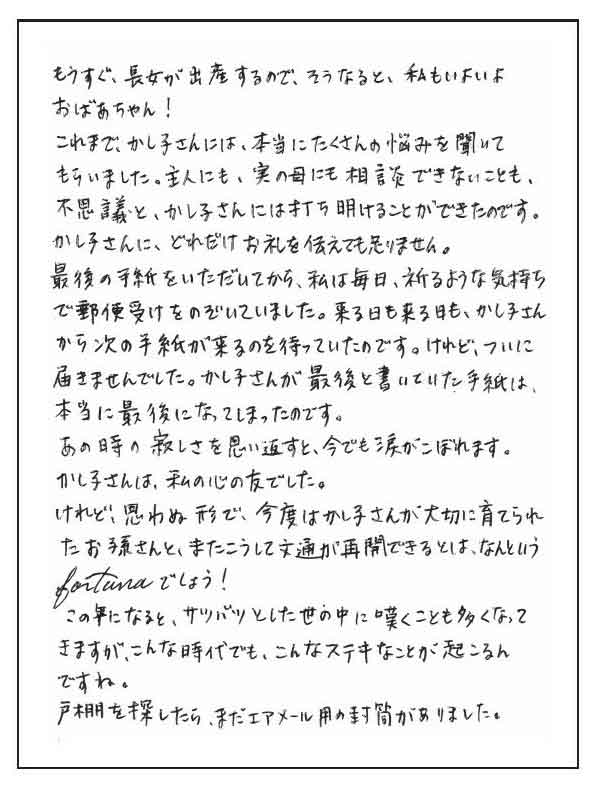 もうすぐ、長女が出産するので、そうなると、私もいよいよ
おばあちゃん！
これまで、かし子さんには、本当にたくさんの悩みを聞いて
もらいました。主人にも、実の母にも相談できないことも、
不思議と、かし子さんには打ち明けることができたのです。
かし子さんに、どれだけお礼を伝えても足りません。
最後の手紙をいただいてから、私は毎日、祈るような気持ち
で郵便受けをのぞいていました。来る日も来る日も、かし子さん
から次の手紙が来るのを待っていたのです。けれど、ついに
届きませんでした。かし子さんが最後と書いていた手紙は、
本当に最後になってしまったのです。
あの時の寂しさを思い返すと、今でも涙がこぼれます。
かし子さんは、私の心の友でした。
けれど、思わぬ形で、今度はかし子さんが大切に育てられ
たお孫さんと、またこうして文通が再開できるとは、なんという
fortunaでしょう！
この年になると、サツバツとした世の中に嘆くことも多くなって
きますが、こんな時代でも、こんなステキなことが起こるん
ですね。
戸棚を探したら、まだエアメール用の封筒がありました。